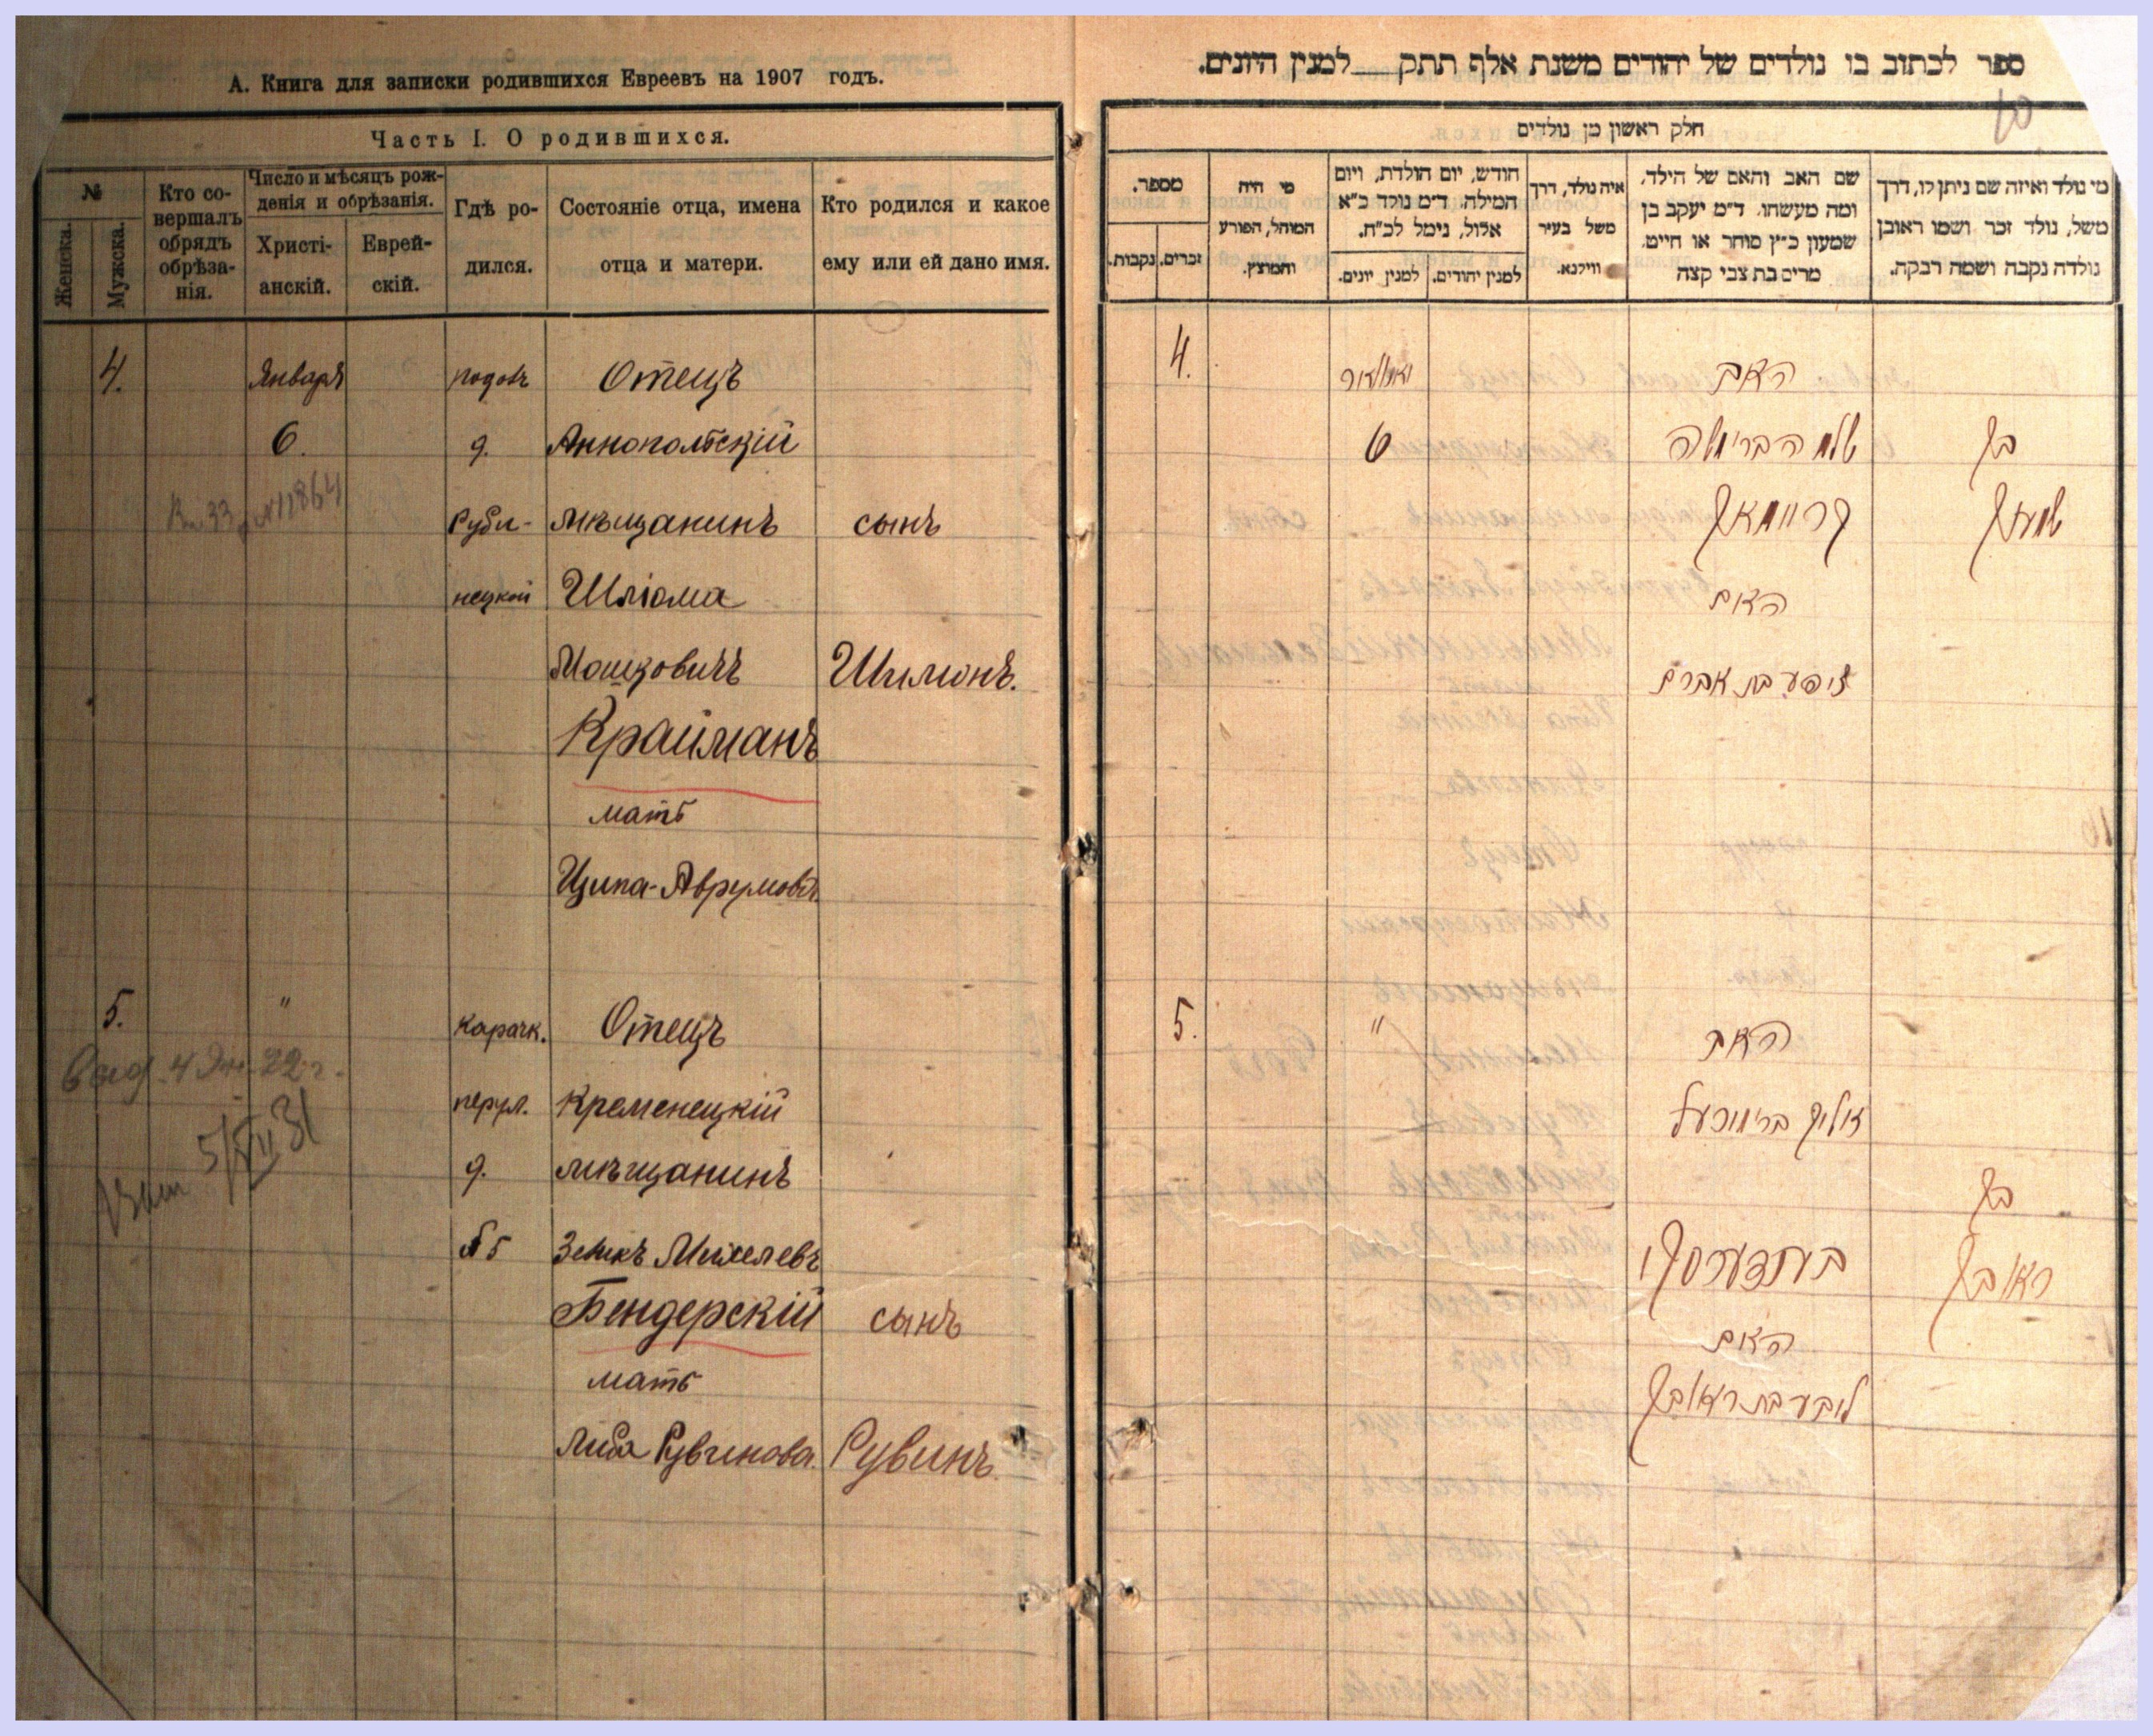 А. Книга для записки родившихся Евреевъ на 1907 годъ.
Часть I. О родившихся.
№
Женска.
Мужска.
Кто со-
вершалъ
обрядъ
обрѣза-
нія.
Число и мѣсяцъ рож-
денія и обрѣзанія.
Христі-
анскій.
Еврей-
скій.
Гдѣ ро-
дился.
Состояніе отца, имена
отца и матери.
Кто родился и какое
ему или ей дано имя.
4.
Января
Отецъ
6.
д.
Аннопольскій
мѣщанинъ
сынъ
Шліома
Мошковичъ
Шимонъ.
Крайманъ
мать
Ципа-Аврумова
5.
"
карачк.
Отецъ
Кременецкій
д.
мѣщанинъ
№5
Зеликъ Михелевъ
Бендерскій
сынъ
мать
Люба Рувинова.
Рувинъ.
ספר לכתוב בו נולדים של יהודים משנת אלף תתק__למנין היונים.
10
חלק ראשון מן נולדים
מספר.
זכרים.
נקבות.
מי היה
המוהל, הפורע
והמוצץ.
חודש, יום הולדת, ויום
המילה. ד״מ נולד כ״א
אלול, נימל לכ״ח.
למנין יהודים.
למנין יונים.
איה נולד, דרך
משל בעיר
ווילנא.
שם האב והאם של הילד,
ומה מעשהו. ד״מ יעקב בן
שמעון כ״ץ סוחר או חייט.
מרים בת צבי קצה
מי נולד ואיזה שם ניתן לו, דרך
משל, נולד זכר ושמו ראובן
נולדה נקבה ושמה רבקה.
4.
יאנואר
האב
6
בן
קריימאן
שמעון
האם
ציפע בת אברם
5.
"
האב
זעליק
בן
בענדערסקי
ראובן
האם
ליבע בת ראובן